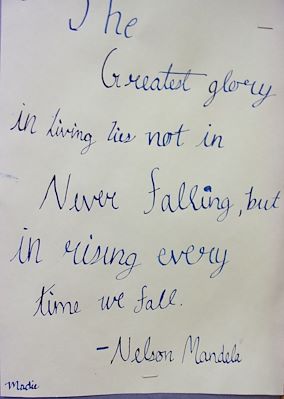 The
Greatest glory
in living lies not in
Never falling, but
in rising every
time we fall.
- Nelson Mandela
Madie